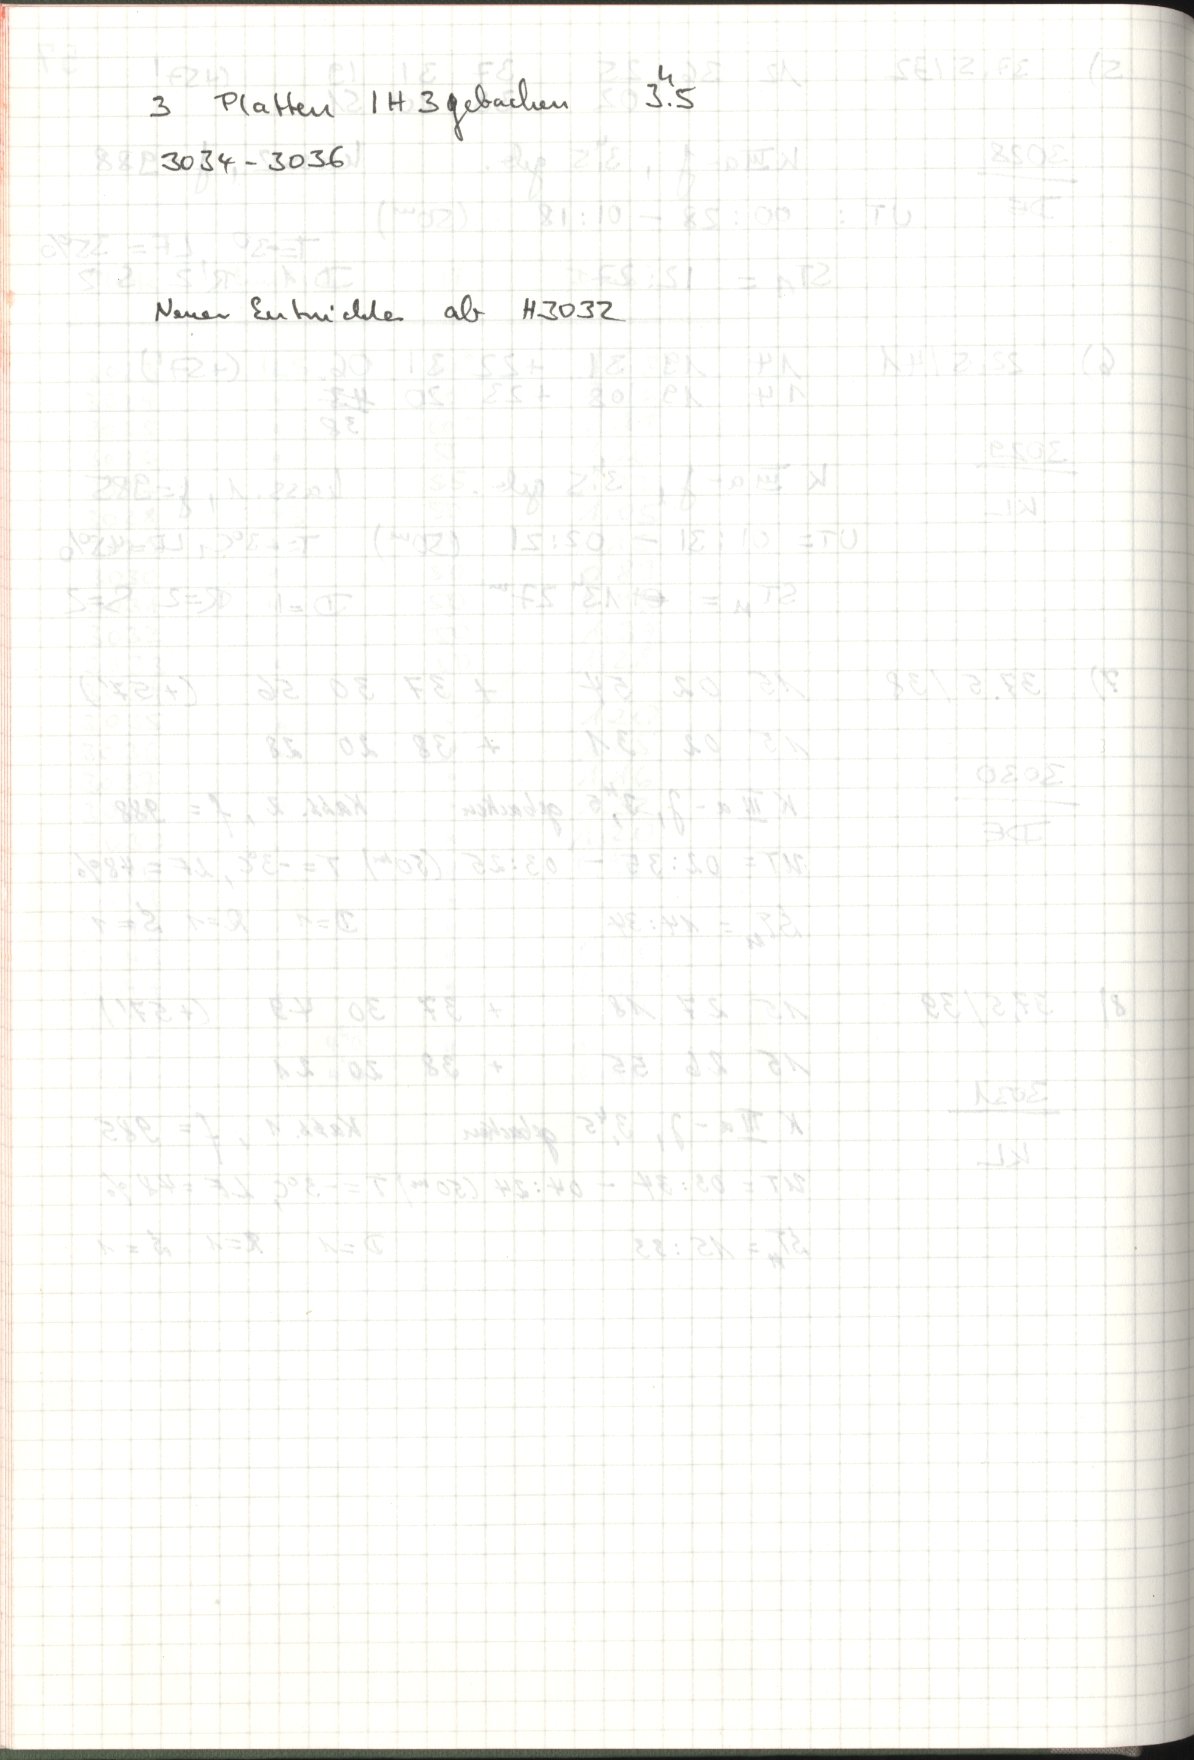 3 Platten IH3 gebacken 3ʰ.5
3034-3036
Neuer Entwickler ab H3032